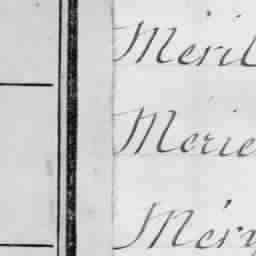 Méril
Merie
Méry